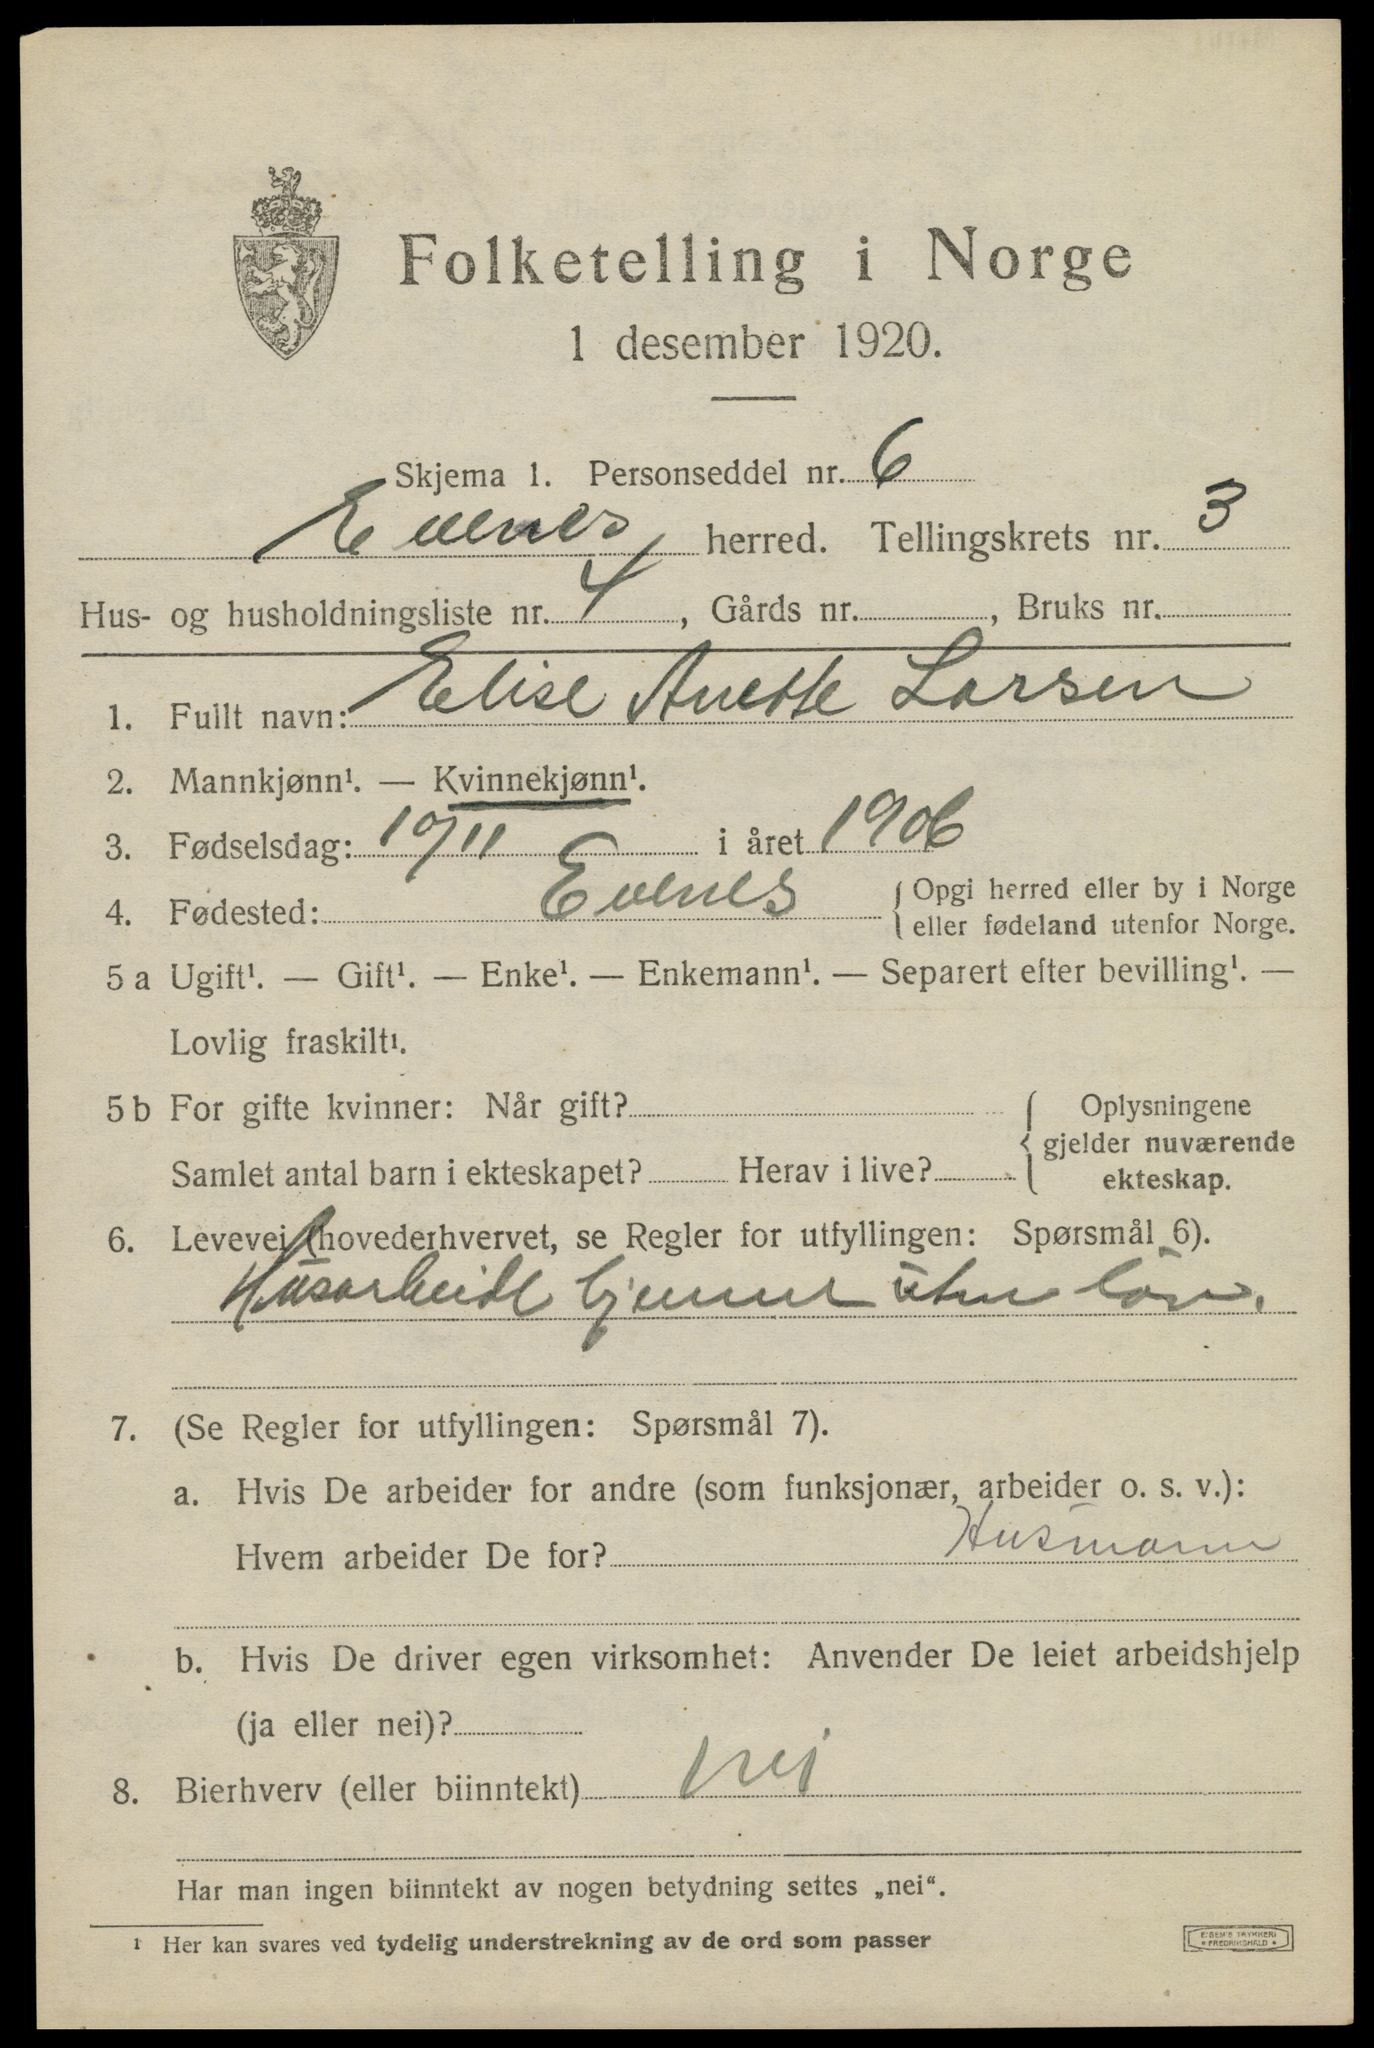 Folketelling i Norge
1 desember 1920.
Skjema 1. Personseddel nr. 6
Evenes herred. Tellingskrets nr. 3
Hus- og husholdningsliste nr. 4, Gårds nr. , Bruks nr.
1. Fullt navn: Elise Anette Larsen
2. Mannkjønn¹. — Kvinnekjønn¹.
3. Fødselsdag: 10/11 i året 1906
4. Fødested: Evenes { Opgi herred eller by i Norge
eller fødeland utenfor Norge.
5 a Ugift¹. — Gift¹. — Enke¹. — Enkemann¹. — Separert efter bevilling¹. —
Lovlig fraskilt¹.
5 b For gifte kvinner: Når gift? { Oplysningene
gjelder nuværende
Samlet antal barn i ekteskapet? Herav i live?
ekteskap.
6. Levevei (hovederhvervet, se Regler for utfyllingen: Spørsmål 6).
Husarbeide hjemme uten løn.
7. (Se Regler for utfyllingen: Spørsmål 7).
a. Hvis De arbeider for andre (som funksjonær, arbeider o. s. v.):
Hvem arbeider De for? Husmann
b. Hvis De driver egen virksomhet: Anvender De leiet arbeidshjelp
(ja eller nei)?
8. Bierhverv (eller biinntekt) nei
Har man ingen biinntekt av nogen betydning settes „nei“.
¹ Her kan svares ved tydelig understrekning av de ord som passer
E. SEM'S TRYKKERI
FREDRIKSHALD